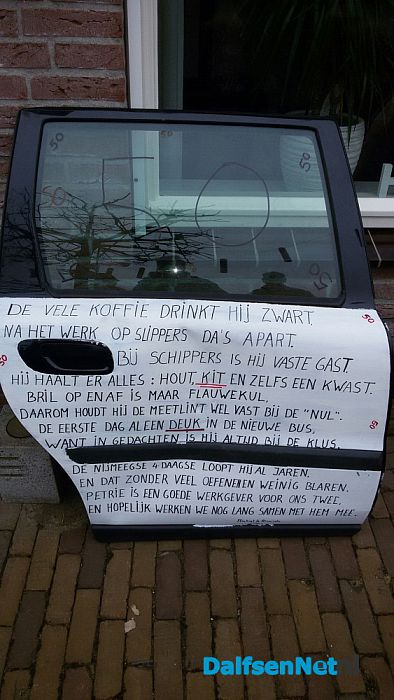 50
50
50
50
50
50
50
50
DE VELE KOFFIE DRINKT HIJ ZWART.
NA HET WERK OP SLIPPERS DA'S APART.
BIJ SCHIPPERS IS HIJ VASTE GAST
HIJ HAALT ER ALLES: HOUT, KIT EN ZELFS EEN KWAST.
BRIL OP EN AF IS MAAR FLAUWEKUL,
DAAROM HOUDT HIJ DE MEETLINT WEL VAST BIJ DE "NUL".
DE EERSTE DAG ALEEN DEUK IN DE NIEUWE BUS,
WANT IN GEDACHTEN IS HIJ ALTIJD BIJ DE KLUS.
DE NIJMEEGSE 4 DAAGSE LOOPT HIJ AL JAREN.
EN DAT ZONDER VEEL OEFENEN EN WEINIG BLAREN.
PETRIE IS EEN GOEDE WERKGEVER VOOR ONS TWEE,
EN HOPELIJK WERKEN WE NOG LANG SAMEN MET HEM MEE.
DalfsenNet